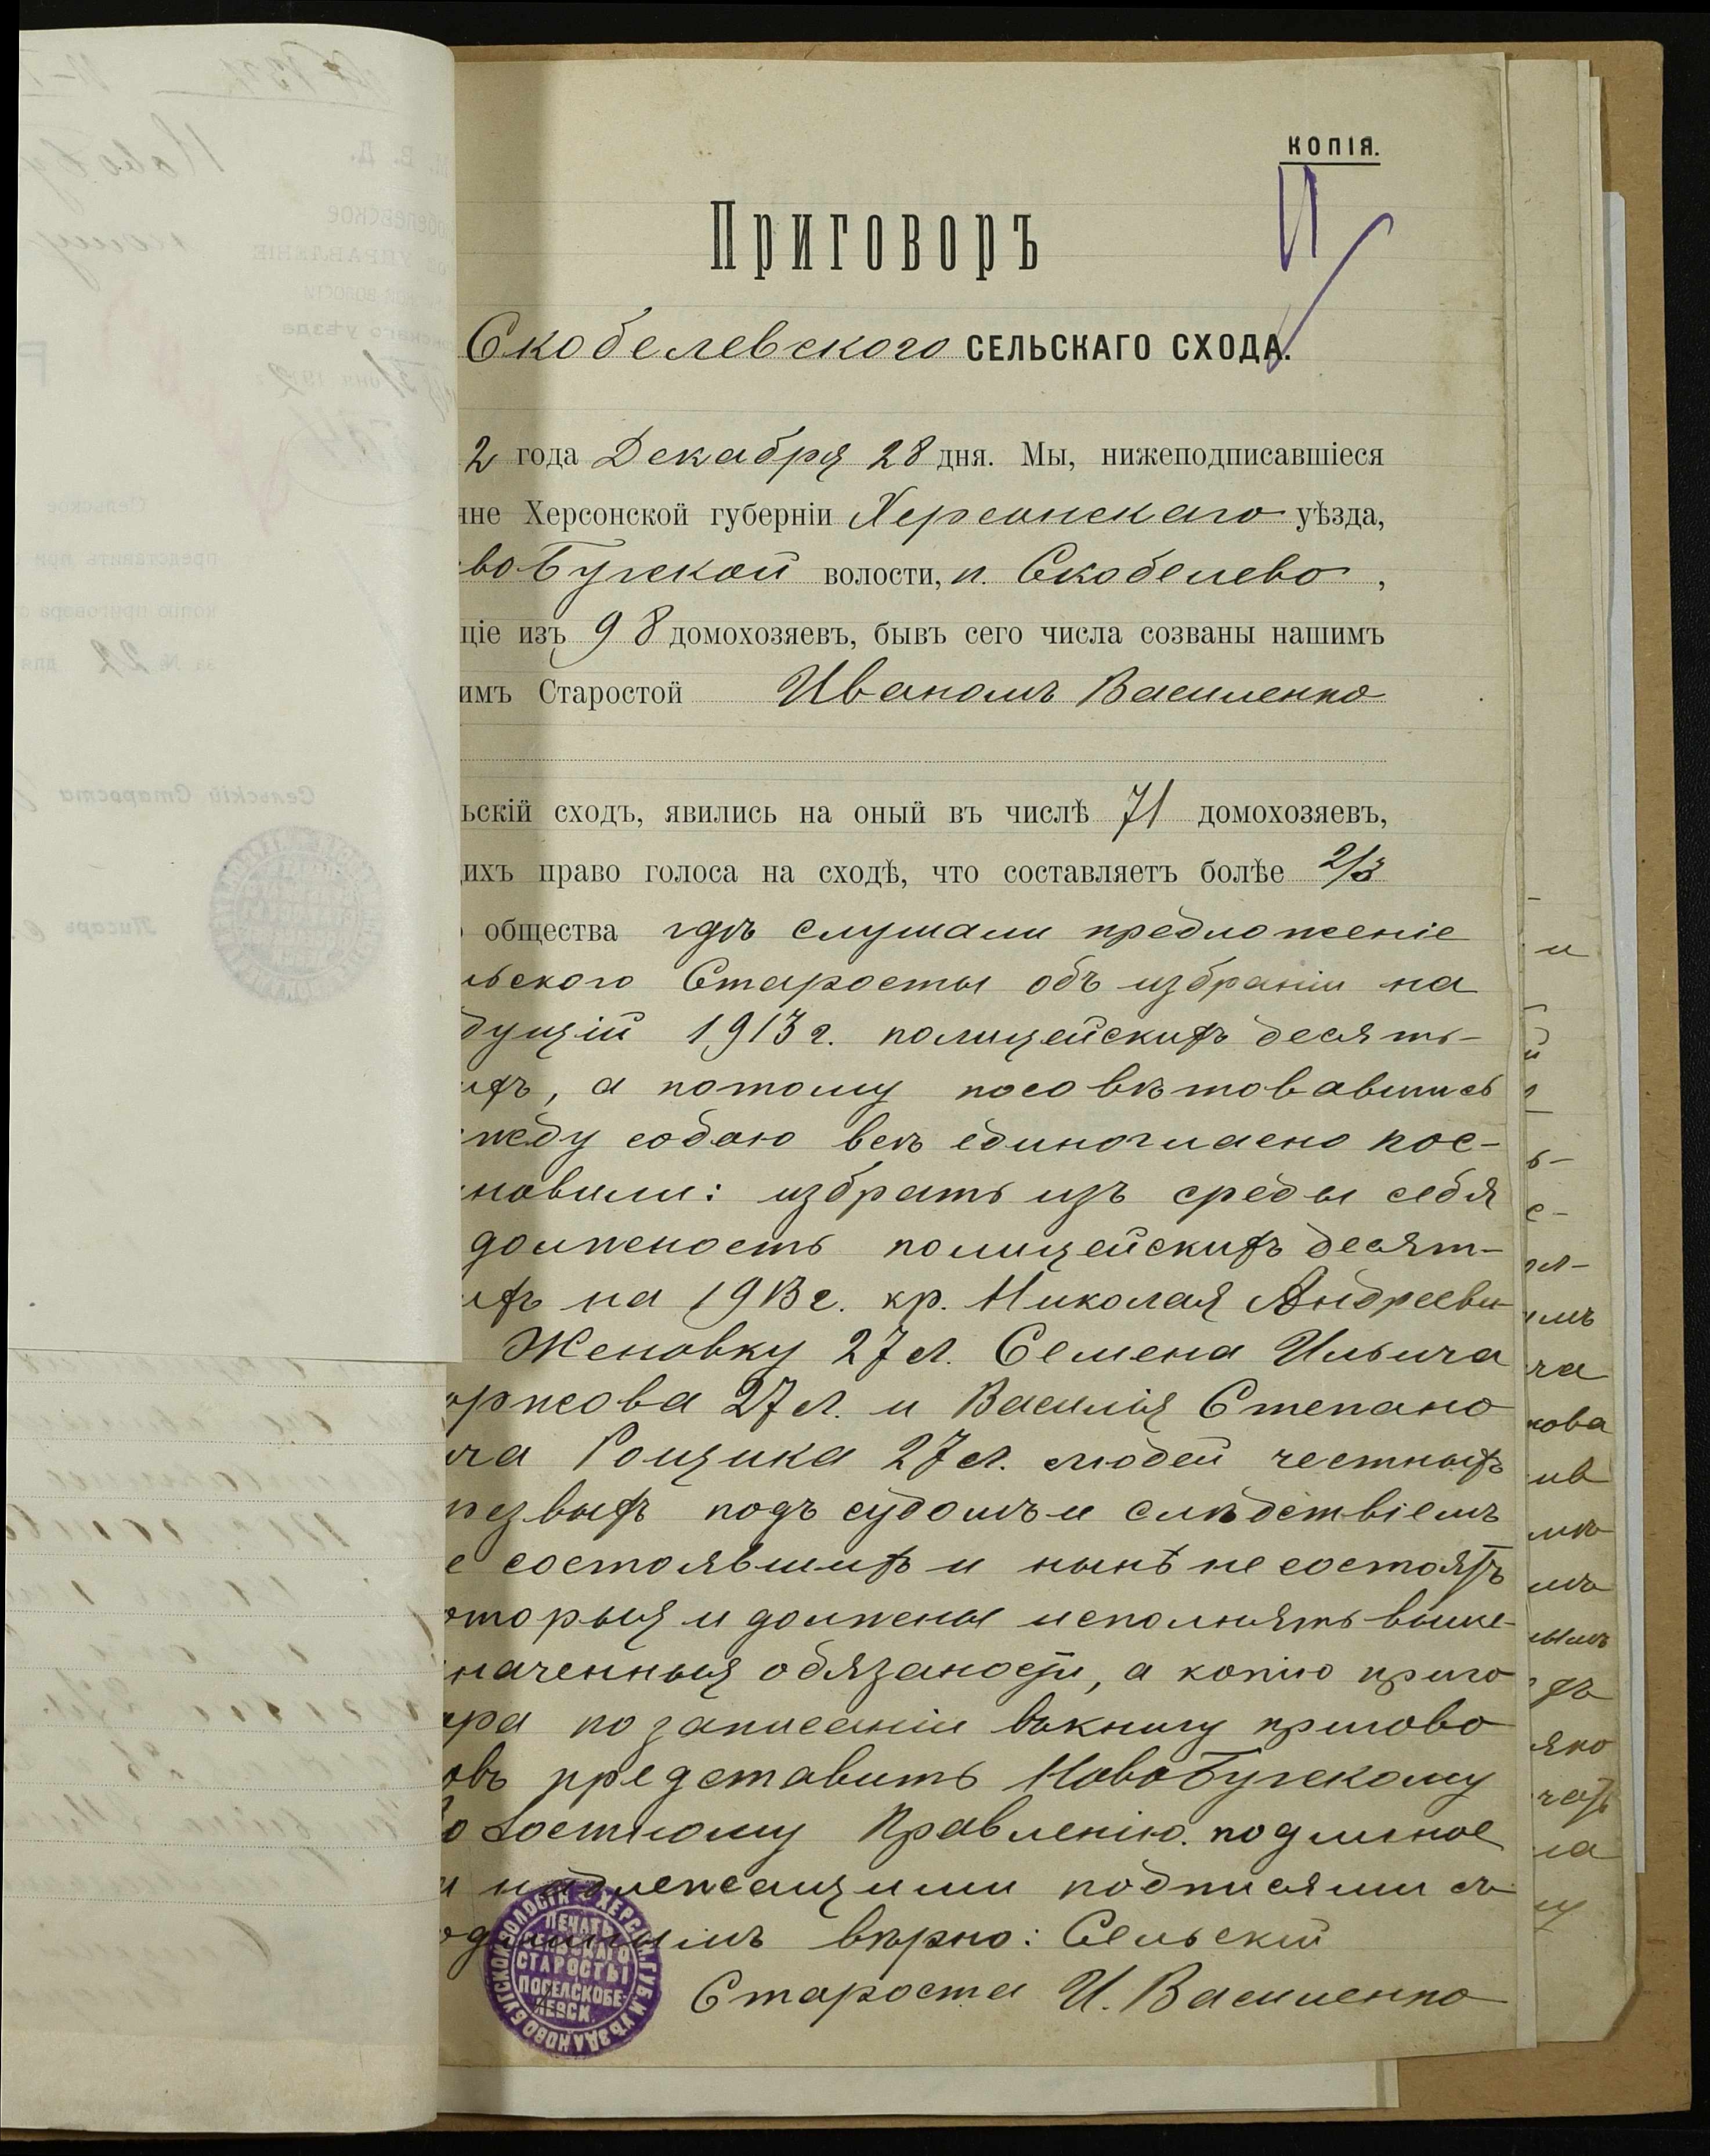 КОПІЯ.
Приговоръ
Скобелевского СЕЛЬСКАГО СХОДА.
2 года Декабря 28 дня. Мы, нижеподписавшіеся
яне Херсонской губерніи Херсонскаго уѣзда,
вобугской волости, п. Скобелево,
щіе изъ 98 домохозяевъ, бывъ сего числа созваны нашимъ
имъ Старостой Иваномъ Василенко
ьскій сходъ, явились на оный въ числѣ 71 домохозяевъ,
ихъ право голоса на сходѣ, что составляетъ болѣе 2/3
общества гдѣ слушали предложеніе
льского Старосты объ избраніи на
дущій 1913 г. полицейскихъ десять-
ихъ, а потому посовѣтовавшись
жду собою всѣ единогласно пос-
новили: избрать изъ среды себя
должность полицейскихъ десят-
ихъ на 1913 г. кр. Николая Андрееви
Женовку 27 л. Семена Ильича
оржова 27 л. и Василія Степано
ча Рощика 27 л. людей честныхъ
резвыхъ подъ судомъ и слѣдствіемъ
е состоявшихъ и нынѣ не состоятъ
оторыя и должны исполнять выше-
наченныя обязаности, а копію приго
ора по записаніи въ книгу пригово
овъ представить Новобугскому
Волостному Правленію. подлиное
и надлежащими подписями съ
одлинимъ вѣрно: Сельскій
Староста И. Василенко
ПЕЧАТЬ
СЕЛЬСКАГО
СТАРОСТЫ
ПОСЕЛ СКОБЕ-
ЛЕВСК.
ХЕРС. ГУБ. И УѢЗДА НОВО БУГСКОЙ ВОЛОСТИ